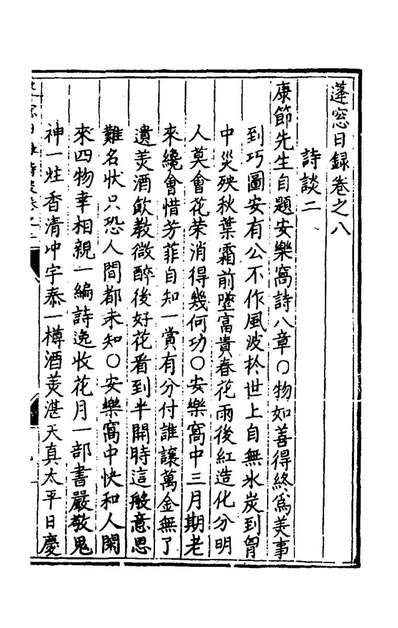 蓬窓日録卷之八
詩談二
康節先生自題安樂窩詩八章○物如善得終爲美事
到巧圖安有公不作風波於世上自無氷炭到胷
中災殃秋葉霜前墜富貴春花雨後紅造化分明
人莫會花荣消得幾何功○安樂窩中三月期老
來纔會惜芳菲自知一賞有分付誰讓萬金無了
遺美酒飮敎微醉後好花看到半開時這般意思
難名狀只恐人間都未知○安樂窩中快和人閑
來四物幸相親一編詩逸收花月一部書嚴敬鬼
神一炷香清冲宇泰一樽酒美湛天真太平日慶